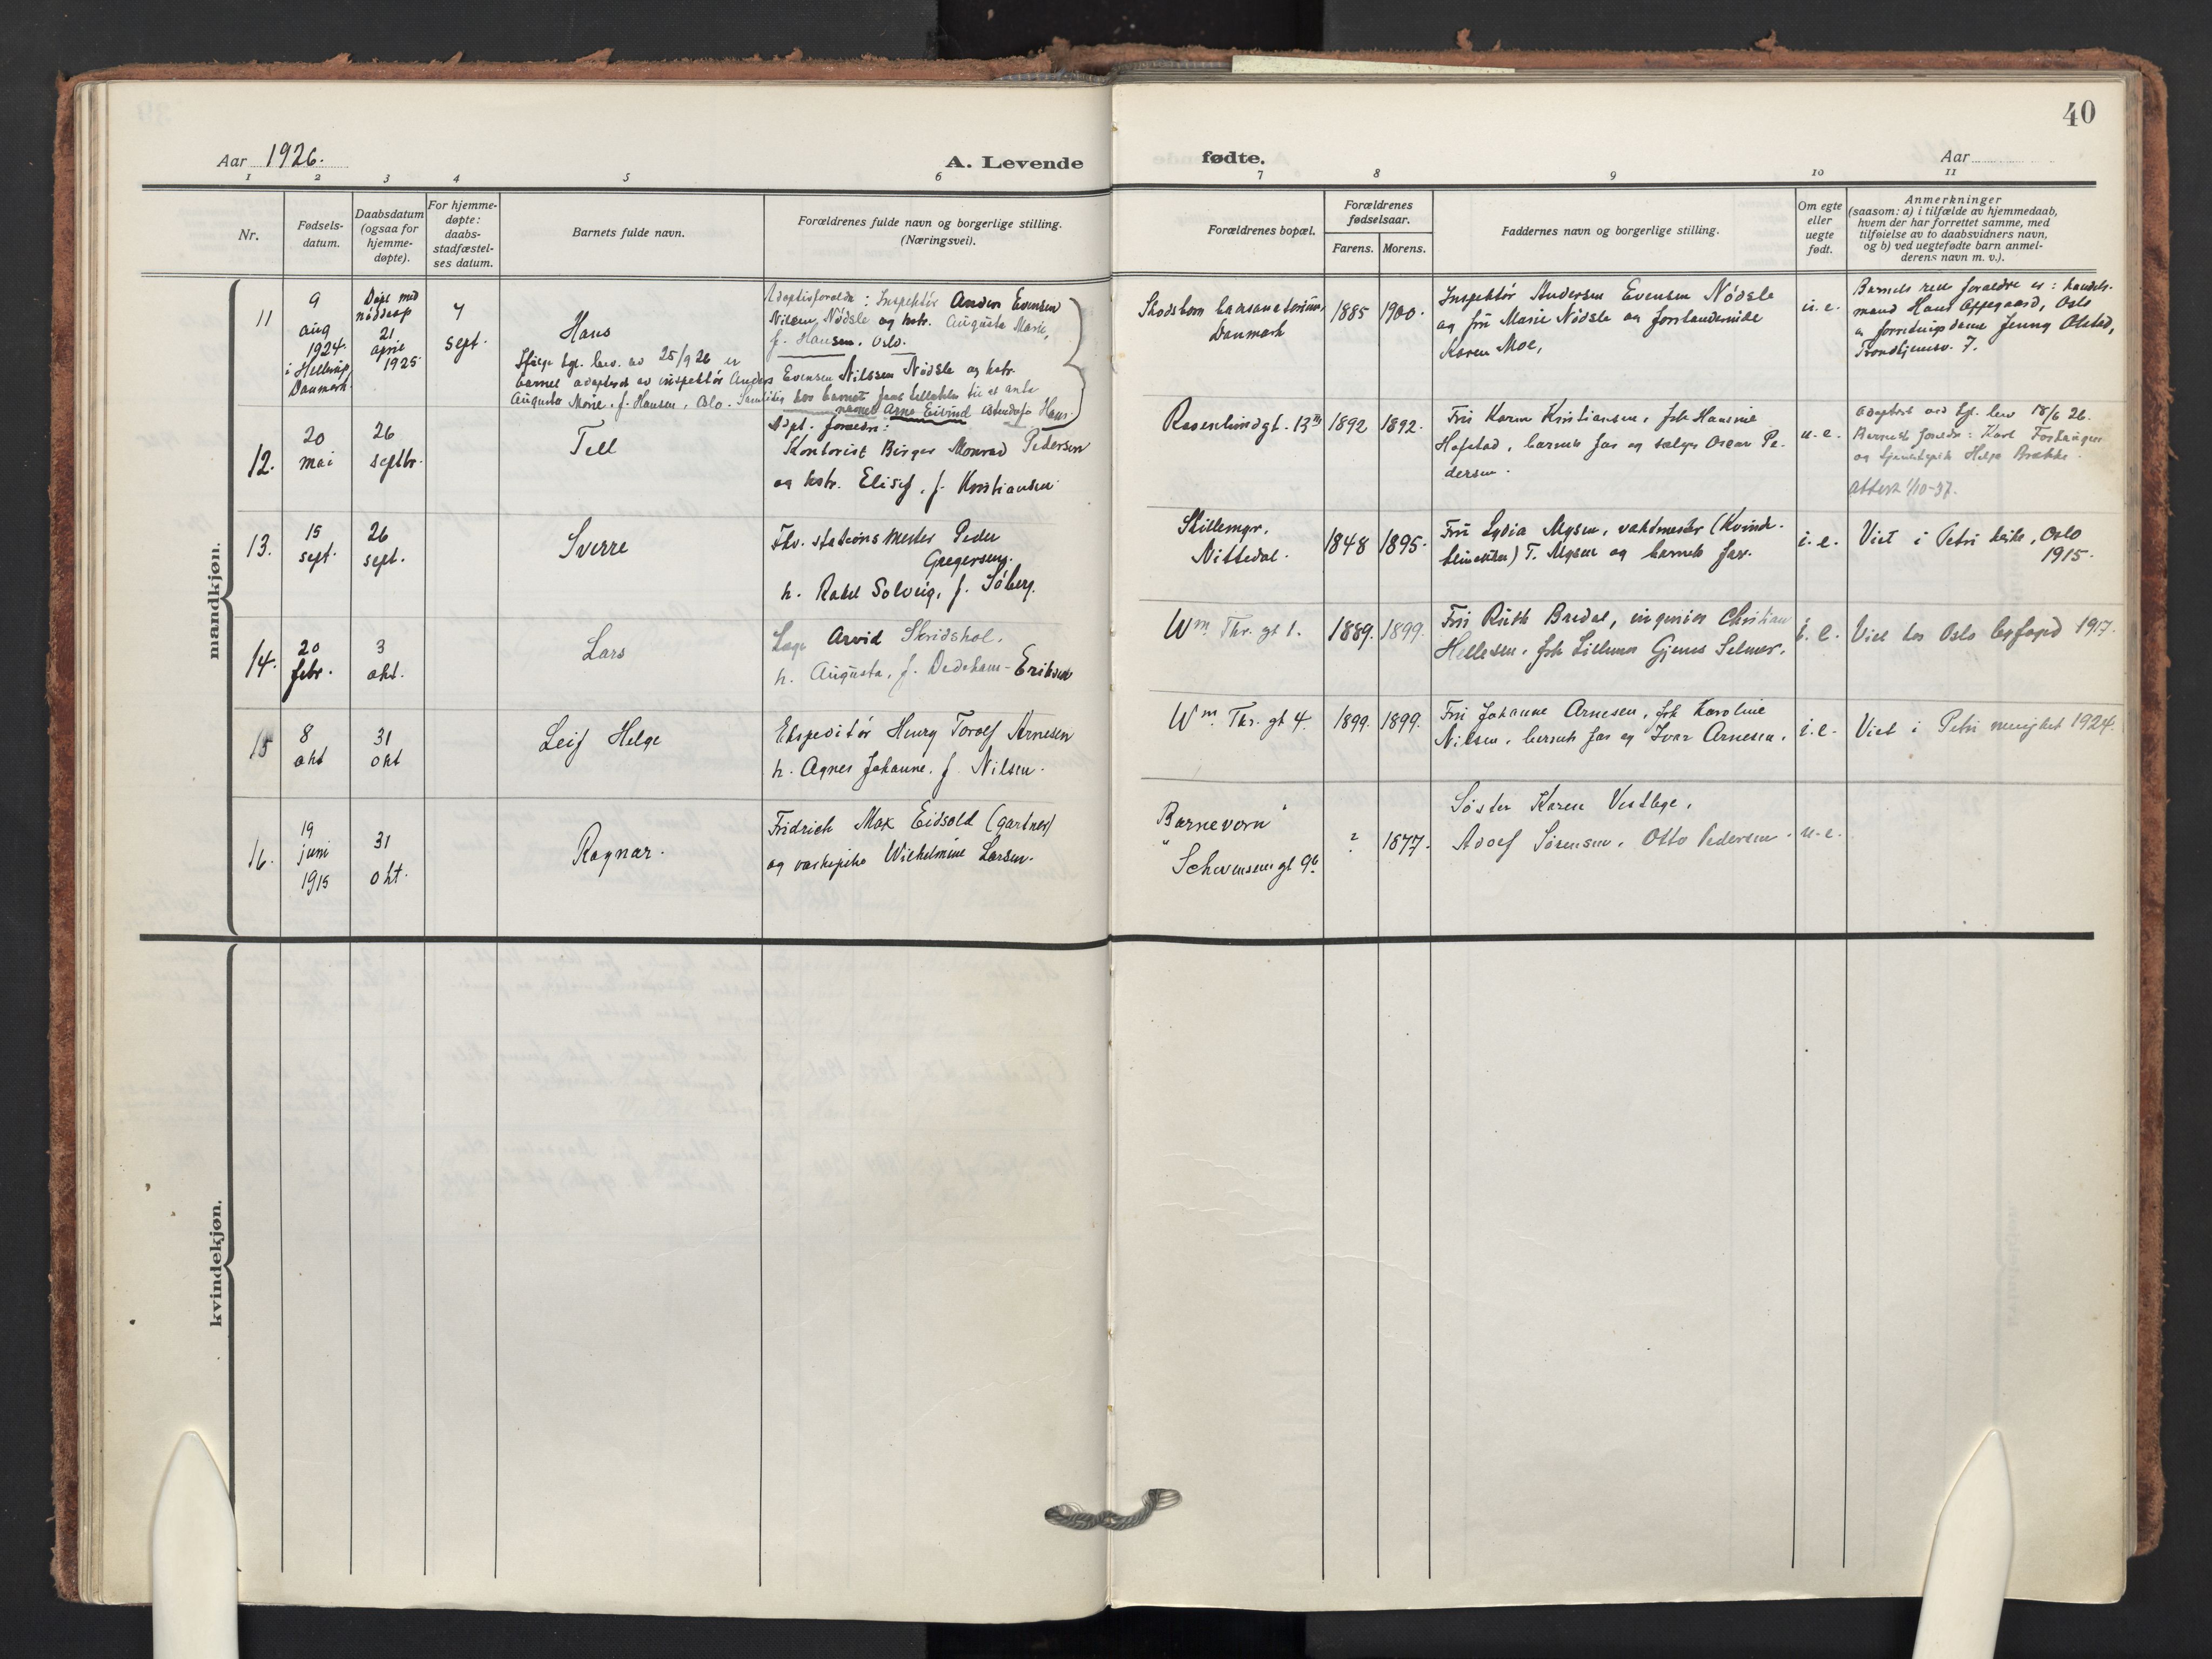 40
Aar 1926.
A. Levende
fødte.
Aar
1 2 3 4 5 6 7 8 9 10 11
Nr.
Fødsels-
datum.
Daabsdatum
(ogsaa for
hjemme-
døpte).
For hjemme-
døpte:
daabs-
stadfæstel-
ses datum.
Barnets fulde navn.
Forældrenes fulde navn og borgerlige stilling.
(Næringsvei).
Forældrenes bopæl.
Forældrenes
fødselsaar.
Farens. Morens.
Faddernes navn og borgerlige stilling.
Om egte
eller
uegte
født.
Anmerkninger
(saasom: a) i tilfælde av hjemmedaab,
hvem der har forrettet samme, med
tilføielse av to daabsvidners navn,
og b) ved uegtefødte barn anmel-
derens navn m. v.).
mandkjøn.
11
9
aug
1924.
i Hellerup
Danmark.
Døpt med
nøddaap
21
april
1925
7
sept.
Hans
Ifølge kgl. bev. av 25/9 26 er
barnet adoptert av inspektör Anders Evensen Nilssen Nödsle og hstr.
Augusta Marie, f. Hansen, Oslo. Samtidig har barnet faat tillatelse til at anta
navnet Arne Eivind istedenfor Hans.
Adoptivforældre: Inspektör Anders Evensen
Nilsen Nödsle og hstr. Augusta Marie,
f. Hansen, Oslo.
Skodsborg sanatorium,
Danmark
1885
1900.
Inspektör Andersen Evensen Nödsle
og frü Marie Nödsle og forstanderinde
Karen Moe,
u. e.
Barnets rette forældre er: handels-
mand Hans Oppegaard, Oslo
og forretningsdame Jenny Olstad,
Trondhjemsv. 7.
12.
20
mai
26
septbr.
Tell
Adpt. forældre:
Kontorist Birger Monrad Pedersen
og hstr. Elisef, f. Kristiansen
Rosenlundgt. 13
1892
1892.
Frü Karen Kristiansen, frk Hansine
Hofstad, barnets far og sælger Oscar Pe-
dersen.
u. e.
Adoptert ved kgl. bev 18/6 26.
Barnets forældre: Karl
og tjenestepike Helga Brække.
Attest 1/10-37.
13.
15
sept.
26
sept.
Sverre
Fhv. stationsmester Peder
Gregersen,
h. Rakel Solveig, f. Söberg.
Skillemyr,
Nittedal.
1848
1895.
Frü Lydia Mysen, vaktmester (Kvinde-
klinikken) T. Mysen og barnets far.
i. e.
Viet i Petri kirke, Oslo
1915.
14.
20
febr.
3
okt.
Lars
Læge Arvid Skridshol,
h. Augusta, f. Dedekam-Eriksen
Wm. Thr. gt 1.
1889.
1899.
Frü Ruth Bredal, ingeniör Christian
Hellesen, frk Lillemor Gjems Selmer.
i. e.
Viet hos Oslo byfoged 1917.
15
8
okt
31
okt
Leif Helge
Ekspeditör Henry Torolf Arnesen
h. Agnes Johanne, f. Nilsen.
Wm. Thr. gt 4.
1899.
1899.
Frü Johanne Arnesen, frk Karoline
Nilsen, barnets far og Ivar Arnesen.
i. e.
Viet i Petri menighet 1924.
16.
19
juni
1915
31
okt.
Ragnar.
Fridrich Max Eidsold (gartner)
og vaskepike Wilhelmine Larsen.
"Barnevern"
Schwensens gt 9b
?
1877.
Söster Karen Vestbye,
Adolf Sörensen, Otto Pedersen.
u. e.
kvindekjøn.